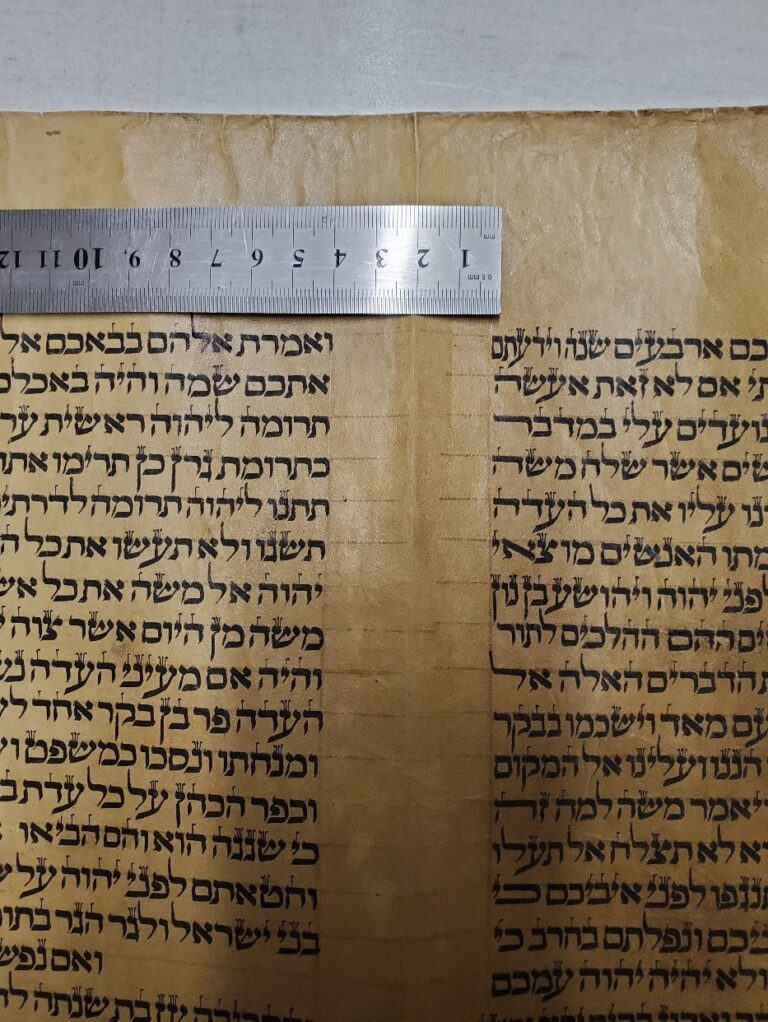 1 2 3 4 5 6 7 8 9 10 11 12
mm
0.5 mm
כם ארבעים שנה וידעתם
תי אם לא זאת אעשה
נועדים עלי במדבר
שים אשר שלח משה
נו עליו את כל העדה
מתו האנשים מוצאי
לפני יהוה ויהושע בן נון
ים ההם ההלכים לתור
הדברים האלה אל
עם מאד וישכמו בבקר
הננו ועלינו אל המקום
יאמר משה למה זה
וא לא תצלח אל תעלו
תנגפו לפני איביכם כי
יכם ונפלתם בחרב כי
ולא יהיה יהוה עמכם
ואמרת אלהם בבאכם אל
אתכם שמה והיה באכלכ
תרומה ליהוה ראשית ער
כתרומת גרן כן תרימו את
תתנו ליהוה תרומה לדרתי
תשגו ולא תעשו את כל ה
יהוה אל משה את כל אש
משה מן היום אשר צוה י
והיה אם מעיני העדה נ
העדה פר בן בקר אחד לע
ומנחתו ונסכו כמשפט ו
וכפר הכהן על כל עדת ב
כי שגגה הוא והם הביאו
וחטאתם לפני יהוה על ש
בני ישראל ולגר הגר בתו
ואם נפש
עז בת שנתה לח